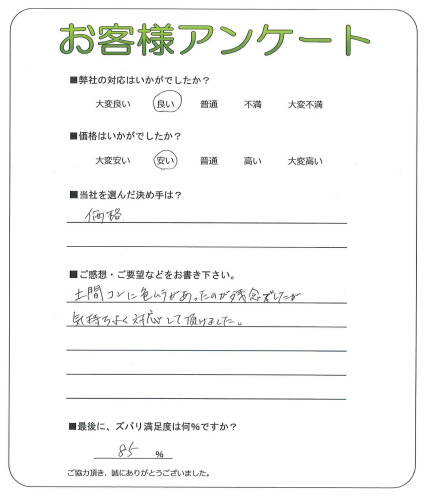 お客様アンケート
■弊社の対応はいかがでしたか？
大変良い 良い 普通 不満 大変不満
■価格はいかがでしたか？
大変安い 安い 普通 高い 大変高い
■当社を選んだ決め手は？
価格
■ご感想・ご要望などをお書き下さい。
土間コンに色ムラがあったのが残念でしたが
気持ちよく対応して頂けました。
■最後に、ズバリ満足度は何%ですか？
85 %
ご協力頂き、誠にありがとうございました。